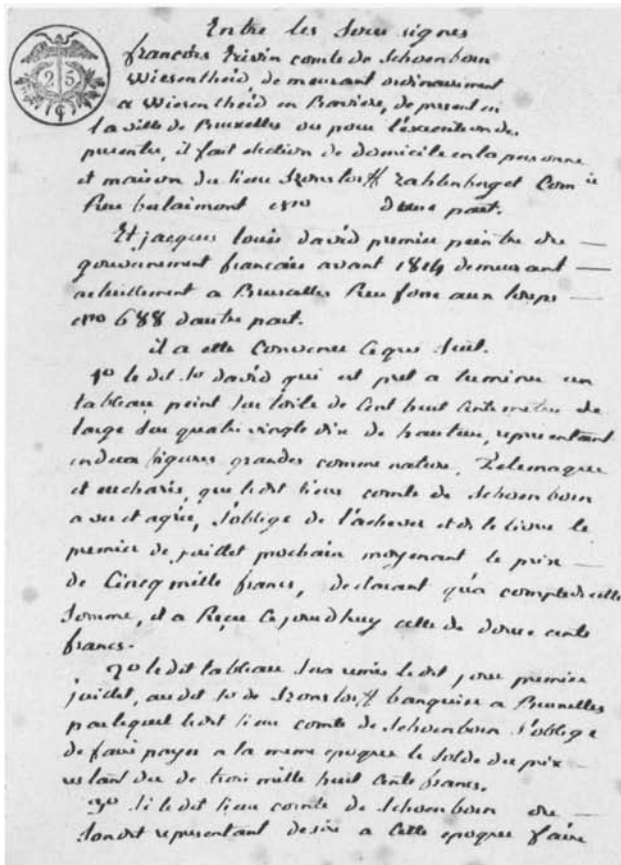 25 C
Entre les sous signes
françois Erivin comte de Schoenborn
Wiesentheid, demeurant ordinairement
a Wiesentheid en Baviere, de present en
la ville de Bruxelles ou pour l'execution des
presentes, il fait election de domicile en la personne
et maison du sieur Zahlenberg et Comie
Rue berlaimont No d'une part.
Et jacques louis david premier peintre du
gouvernement francais avant 1814 demeurant
actuellement a Bruxelles Rue fosse aux loups
No 688 d'autre part.
il a ette Convenu Ce qui Suit.
1o le dit Sr david qui est pret a terminer un
tableau peint sur toile de Cent huit Centimetres de
large sur quatre vingts dix de hauteur, representant
en deux figures grandes comme nature, Telemaque
et eucharis, que ledit sieur comte de Schoenborn
a vu et agréé, s'oblige de l'achever et de le livrer le
premier de juillet prochain moyenant le prix
de Cincq mille francs, declarant qu'a compte de cette
Somme, il a Reçu Ce jourdhuy celle de douze cents
francs.
2o ledit tableau Sera remis ledit jour premier
juillet, audit Sr de banquier a Bruxelles
par lequel ledit sieur comte de Schoenborn s'oblige
de faire payer a la meme epoque le solde du prix
restant du de trois mille huit Cents francs.
3o Si le dit sieur comte de Schoenborn ou
Son dit representant desire a Cette epoque faire